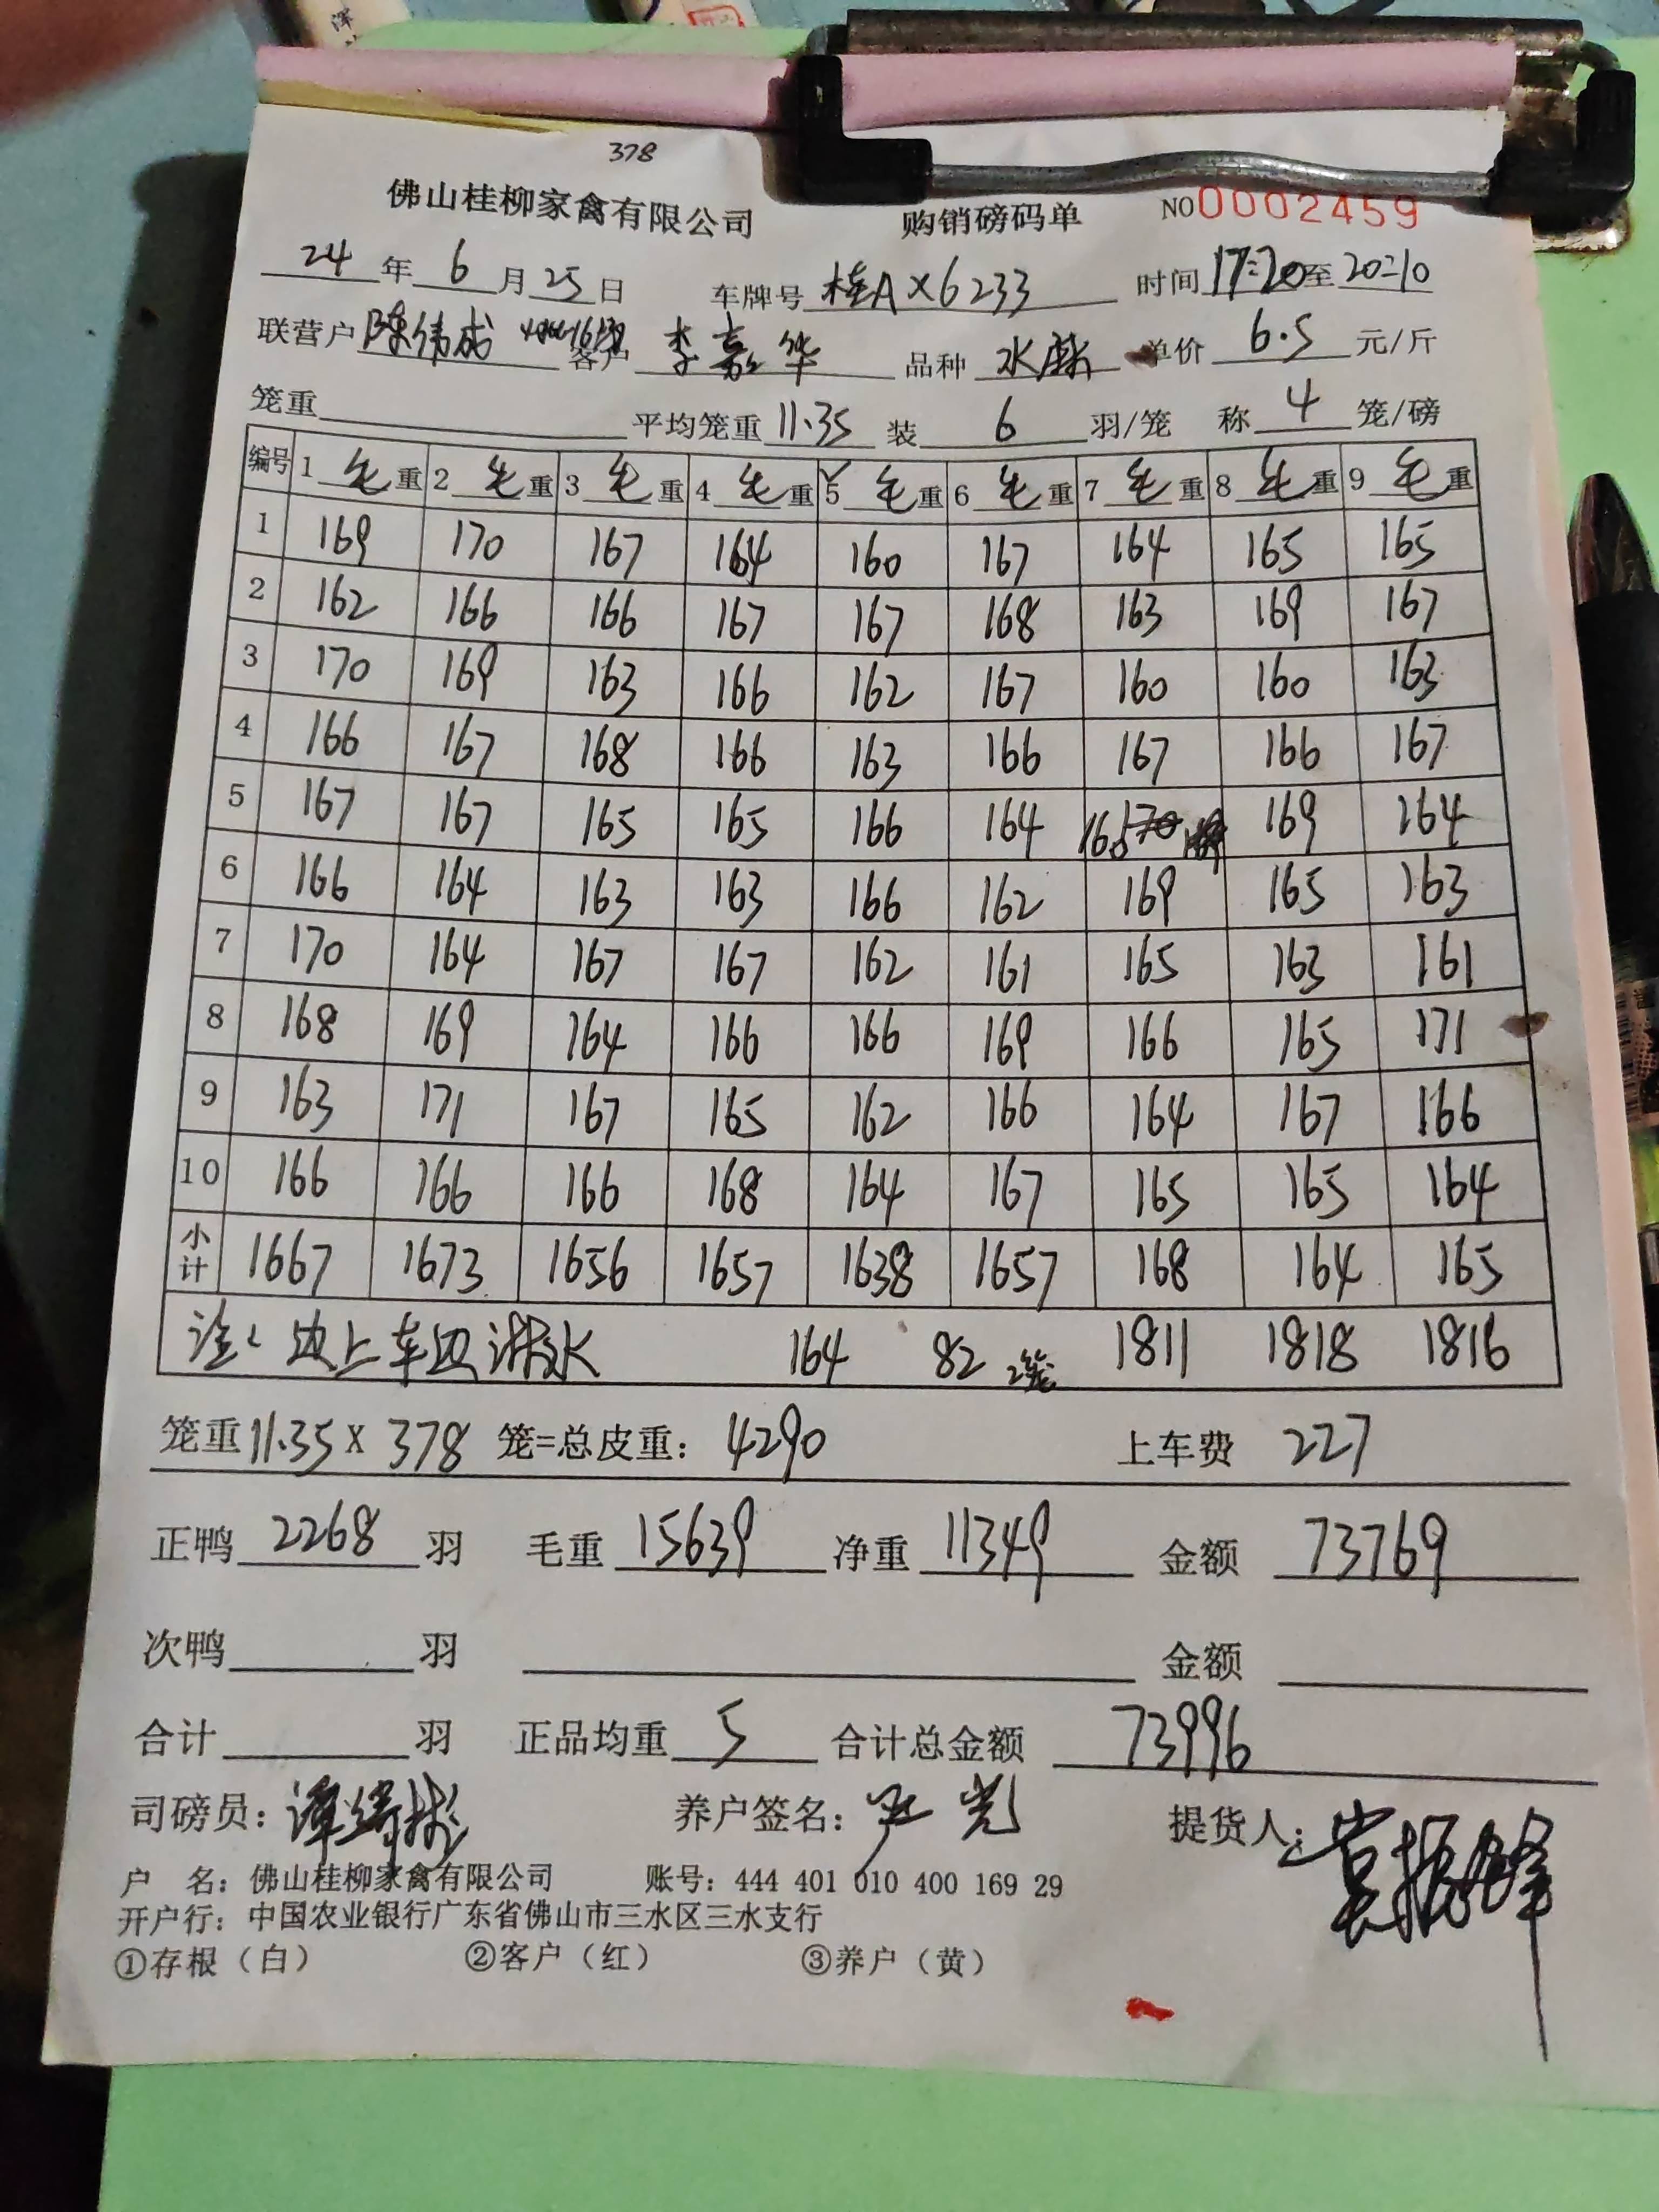 378
佛山桂柳家禽有限公司 购销磅码单 NO0002459
24年6月25日 车牌号 桂AX6233 时间17:20至20:10
联营户 陈伟成 客户 李嘉华 品种 水麻 单价 6.5 元/斤
笼重 平均笼重 11.35 装 6 羽/笼 称 4 笼/磅
编号 1 毛重 2 毛重 3 毛重 4 毛重 5 毛重 6 毛重 7 毛重 8 毛重 9 毛重
1 169 170 167 164 160 167 164 165 165
2 162 166 166 167 167 168 163 169 167
3 170 169 163 166 162 167 160 160 163
4 166 167 168 166 163 166 167 166 167
5 167 167 165 165 166 164 165 169 164
6 166 164 163 163 166 162 169 165 163
7 170 164 167 167 162 161 165 163 161
8 168 169 164 166 166 169 166 165 171
9 163 171 167 165 162 166 164 167 166
10 166 166 166 168 164 167 165 165 164
小计 1667 1673 1656 1657 1638 1657 168 164 165
注: 边上车边淋水 164 82 2笼 1811 1818 1816
笼重 11.35 X 378 笼=总皮重: 4290 上车费 227
正鸭 2268 羽 毛重 15639 净重 11349 金额 73769
次鸭 羽 金额
合计 羽 正品均重 5 合计总金额 73996
司磅员: 养户签名: 提货人:
户 名: 佛山桂柳家禽有限公司 账号: 444 401 010 400 169 29
开户行: 中国农业银行广东省佛山市三水区三水支行
①存根（白） ②客户（红） ③养户（黄）